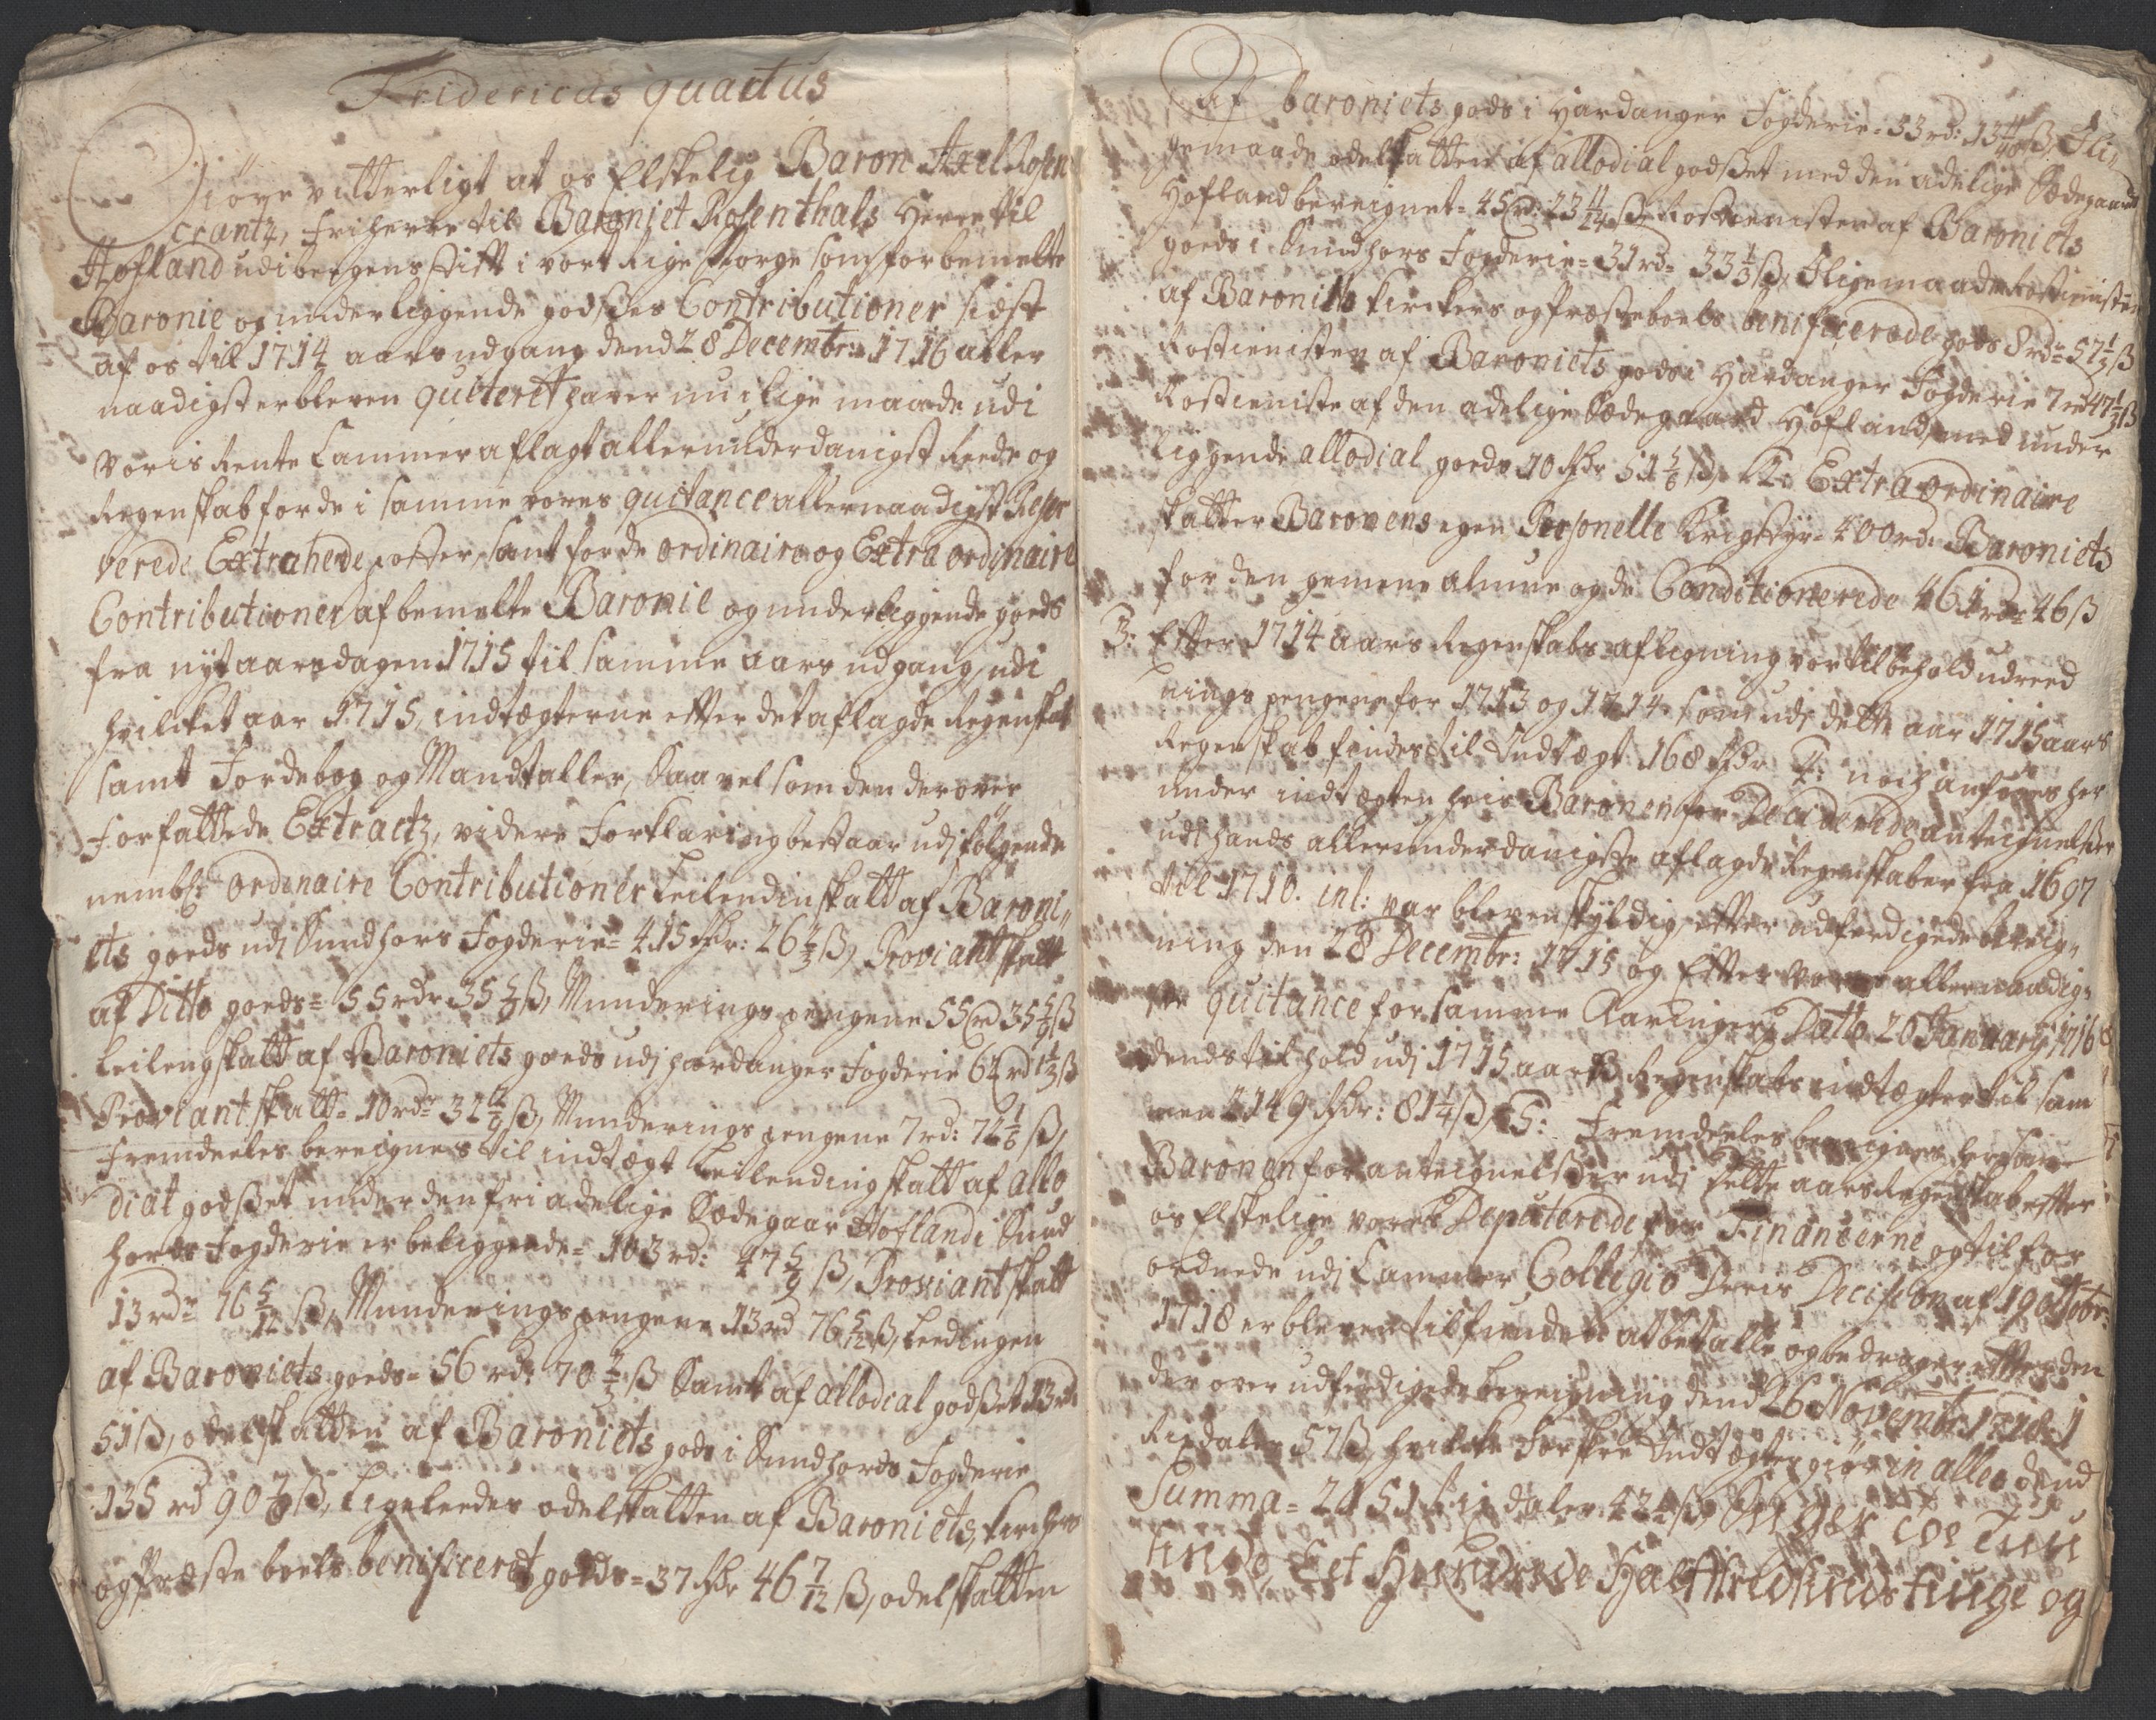 Fridericus quartus
Giöre vitterligt at os Elskelig Baron Axel Rosen
crantz, Friherre til Baroniet Rosenthals Herre til
Hofland udi bergens stift i vort Rige Norge som forbemelte
Baronie og underliggende godses Contributioner sidst
af os til 1714 aars udgang dend 28 Decembr: 1716 aller
naadigst er bleven quiteret haver nu i lige maade udi
voris Rente Cammer aflagt allerunderdanigst Reede og
Regenskab for de i samme vores quitance allernaadigst Reser
verede Extraherede poster, samt for de ordinaire og Extraordinaire
Contributioner af bemelte Baronie og underliggende goeds
fra nyt aarsdagen 1715 til samme aars udgang, udi
hvilcket aar 1715, indtægterne efter det aflagde Regenskab
samt Jordebog og Mandtaller, Saavelsom den derover
Forfattede Extract, videre Forklaring bestaar udi følgende
nembl: Ordinaire Contributioner Leilendinskatt af Baroni„
ets goeds udi Sundhors Fogderie = 415 Rdr: 26 2/3 ß, Proviantskatt
af Ditto goeds = 55 rdr 35 5/9 ß, Munderings pengene 55 rd 35 5/9 ß
Leilengskatt af Baroniets goeds udi hardanger Fogderie 62 rd 1 1/3 ß
Proviantskatt = 10 rdr 32 2/9 ß, Munderings pengene 7 rd: 72 1/6 ß,
Fremdeeles bereignes til indtægt Leilendingskatt af allo
dial godset under den fri adelige Sædegaar Hofland i Sund
hords Fogderie er beliggende = 103 rd: 47 5/9 ß, Proviantskatt
13 rdr 76 5/12 ß, Munderings pengene 13 rd 76 5/12 ß, Leedingen
af Baroniets goeds = 56 rdr 70 2/3 ß Samt af allodial godset 13 rd
51 ß, odelskatten af Baroniets gods i Sundhords Fogderie
135 rd 90 7/9 ß, Ligeleedes odelskatten af Baroniets, kirchers
og Præste boels beneficeret goeds = 37 Rdr 46 7/12 ß, odelskatten
Af baroniets gods i Hardanger Fogderie = 33 rd: 13 ß, I li„
gemaade odelskatten af allodial godset med den adelige Sædegaard
Hofland bereignet = 45 rd: 23 11/24 ß Rostienisten af Baroniets
goeds i Sundhors Fogderie = 31 rd = 33 1/3 ß, I ligemaade Rostienisten
af Baroniets kirckers og Præsteboels benificerede gods 8 rdr 57 1/2 ß
Rostienisten af Baroniets gods i Hardanger Fogderie 7 rd 47 1/2 ß
Rostieniste af den adelige Sædegaard Hofland, med under
liggende allodial goeds 10 Rdr 51 5/6 ß, 2: Extraordinaire
skatter Baronens egen Personelle Krigstyr = 400 rd: Baroniets
for den gemene almue og de Conditionerede 464 rdr 46 ß
3: Efter 1714 aars Regenskabs aflegning vor til behold udreed
nings pengene for 1713 og 1714 som udi dette aar 1715 aars
Regenskab findes til Indtægt 168 Rdr 4: noch anføres her
under indtægten hvis Baronen for Deciderede anteignelser
udi hands allerunderdanigste aflagde Regenskaber fra 1697
til 1710. inl: var bleven skyldig, efter udferdigede bereig„
ning den 28 Decembr: 1715 og Efter Vores allernaadig„
ste quitance for samme Aaringer Datto 20 January 1716
dends til hold udi 1715 aars Regenskabs indtægter til sam
men 2149 Rdr: 81 1/4 ß, 5: Fremdeeles bereignes her som
Baronen for anteignelser udi dette aars Regenskab efter
os Elskelige vores Deputerede for Financerne og til for
ordnede udi Cammer Collegio Deris Decision af 19 Octobr:
1718 er bleven tilfunden at betalle og bedrager efter den
der over udferdigede bereigning dend 26 Novembr: 1718 = 1
Rixdaler 57 ß, hvilcke Forskr: Indtægter giør in alles dend
Summa = 2151 Rixdaler 42 1/4 ß, Siger Toe Tuu
sinde Eet Hundrede Halftrediesinds tiuge og